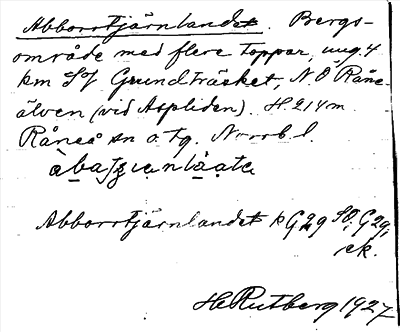 Abborrtjärnlandet. Bergs-
område med flere toppar, ung. 4
km SV Grundträsket, NO Råne-
älven (vid Aspliden). H 214 m.
Råneå sn o. tg. Norrb l.
Abborrtjärnlandet k G29 SO, G29,
ek.
H Rutberg 1927